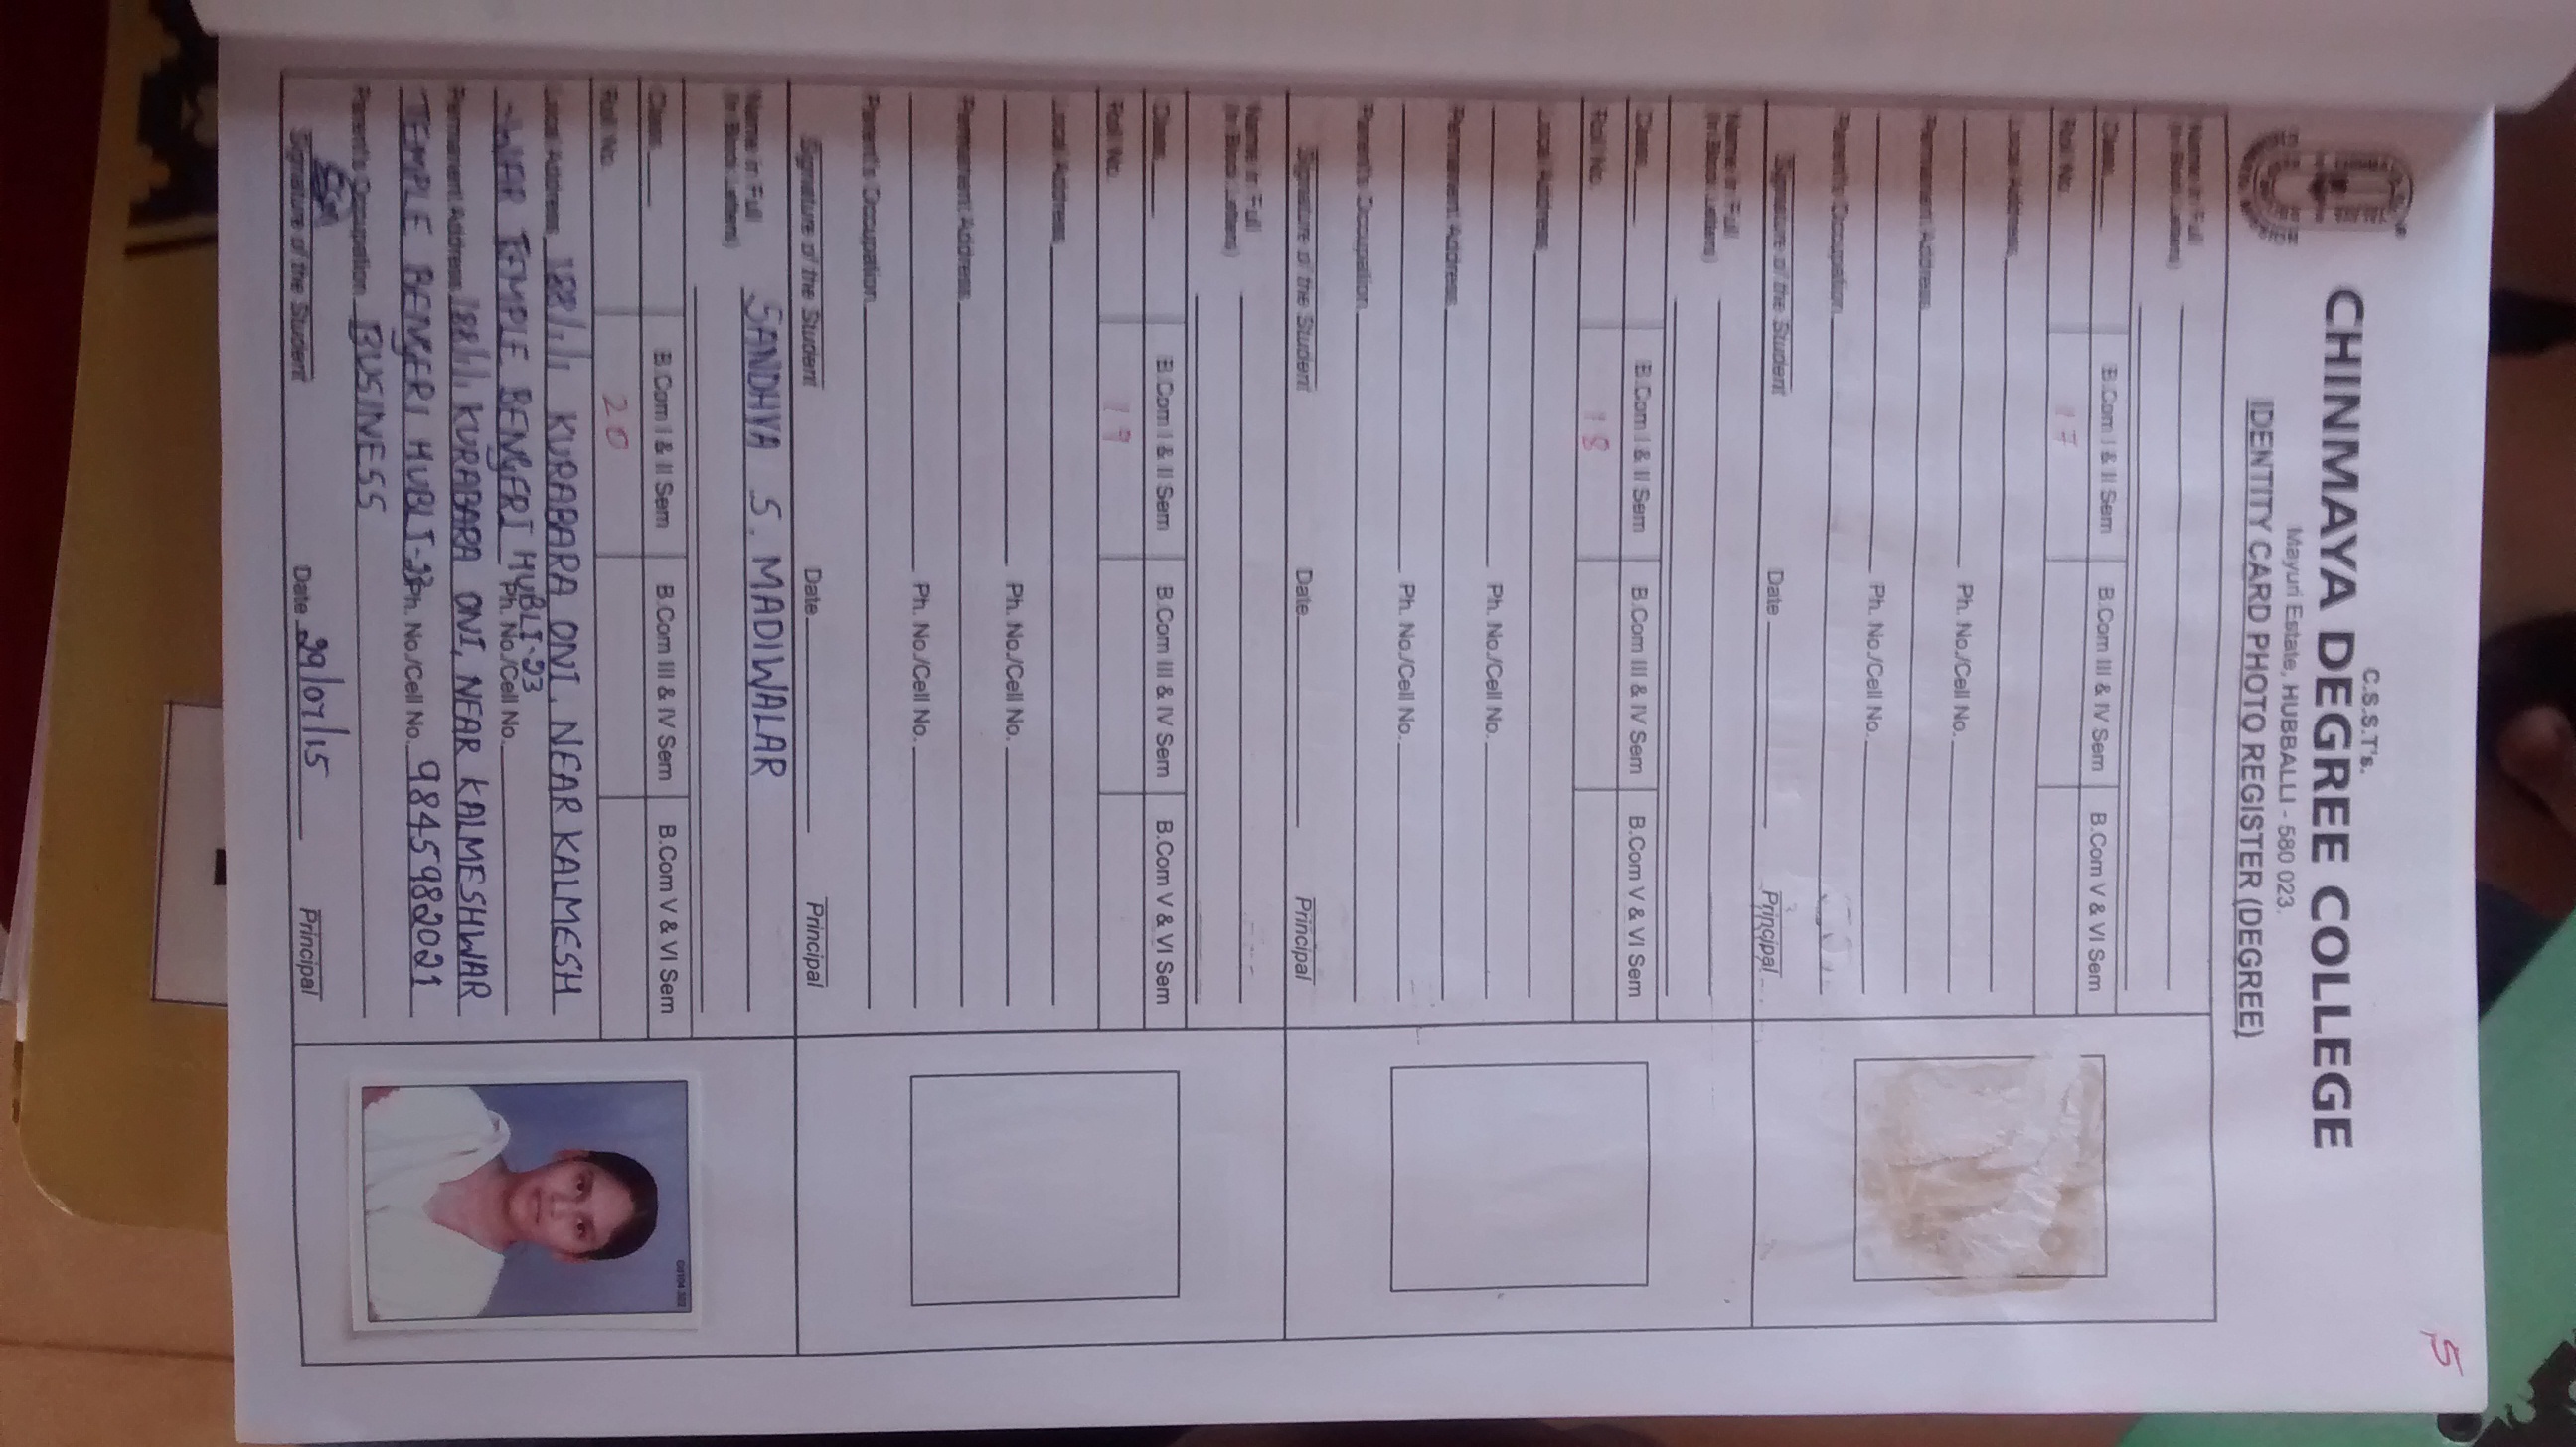 C.S.S.T's.
CHINMAYA DEGREE COLLEGE
Mayuri Estate, HUBBALLI - 580 023.
IDENTITY CARD PHOTO REGISTER (DEGREE)
15
Name in Full
(In Block Letters)
Class B.Com I & II Sem B.Com III & IV Sem B.Com V & VI Sem
Roll No. 17
Local Address
Ph. No./Cell No.
Permanent Address
Ph. No./Cell No.
Parent's Occupation
Signature of the Student Date Principal
Name in Full
(In Block Letters)
Class B.Com I & II Sem B.Com III & IV Sem B.Com V & VI Sem
Roll No. 18
Local Address
Ph. No./Cell No.
Permanent Address
Ph. No./Cell No.
Parent's Occupation
Signature of the Student Date Principal
Name in Full
(In Block Letters)
Class B.Com I & II Sem B.Com III & IV Sem B.Com V & VI Sem
Roll No. 19
Local Address
Ph. No./Cell No.
Permanent Address
Ph. No./Cell No.
Parent's Occupation
Signature of the Student Date Principal
Name in Full SANDHYA S. MADIWALAR
(In Block Letters)
Class B.Com I & II Sem B.Com III & IV Sem B.Com V & VI Sem
Roll No. 20
Local Address 188/1/1 KURABARA ONI, NEAR KALMESH
TEMPLE BENGERI HUBLI-23 Ph. No./Cell No.
Permanent Address 188/1/1 KURABARA ONI, NEAR KALMESHWAR
TEMPLE BENGERI HUBLI-23 Ph. No./Cell No. 9845982021
Parent's Occupation BUSINESS
Signature of the Student Date 29/07/15 Principal